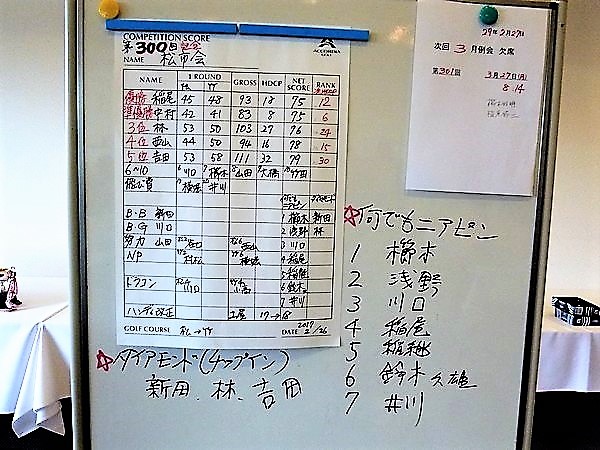 COMPETITION SCORE
第300回 記念
NAME 松竹会
ACCORDIA GOLF
NAME 1 ROUND GROSS HDCP NET SCORE RANK
松 竹
優勝 稲尾 45 48 93 18 75 12
準優勝 中村 42 41 83 8 75 6
3位 林 53 50 103 27 76 24
4位 西山 44 50 94 16 78 15
5位 吉田 53 58 111 32 79 30
6~10 川口 櫛木 山田 大橋 竹田
横溝 井川
何でもニアピン ダイヤモンド
1 櫛木 新田
B・B 新田 2 浅野 林
B・G 川口 3 川口
努力 山田 西山 4 稲尾
NP 村松 5 稲垣
ドラコン 川口 6 鈴木
7 井川
ハンディ改正
GOLF COURSE 松→竹 DATE 2017 2/26
29年2月27日
次回 3月例会 欠席
第301回 3月27日(月)
8:14
☆何でもニアピン
1 櫛木
2 浅野
3 川口
4 稲尾
5 稲垣
6 鈴木久雄
7 井川
☆ダイアモンド(チップイン)
新田、林、吉田